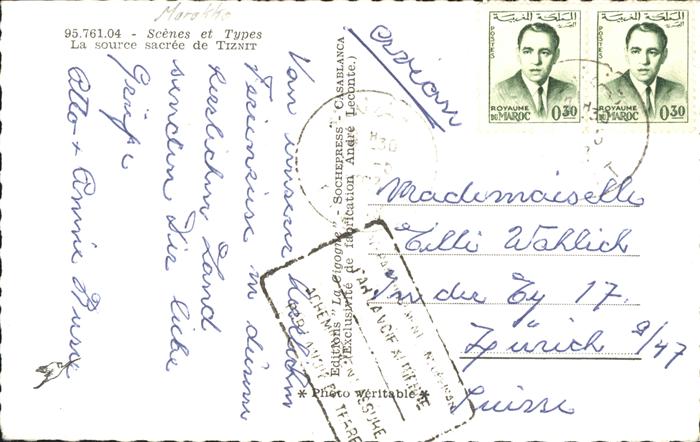 Marokko
95.761.04 - Scènes et Types
La source sacrée de TIZNIT
Von unserer herrlichen
Ferienreise in diesem
herrlichen Land
senden Dir liebe
Grüsse
Otto + Annie
Editions "La Cigogne" - SOCHEPRESS - CASABLANCA
(Exclusivité de fabrication André Leconte.)
* Photo véritable *
avion
المملكة المغربية
POSTES
ROYAUME
DU MAROC
0,30
المملكة المغربية
POSTES
ROYAUME
DU MAROC
0,30
Mademoiselle
Tilli Wahlich
In der Ey 17.
Zürich 9/47
Suisse
PAR LA VOIE AERIENNE